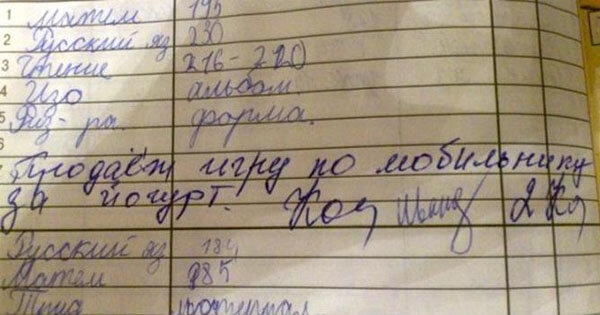 1 матем 195
2 Русский яз 230
3 Чтение 216-220
4 Изо альбом.
5 Физ-ра. форма.
7 Продаёт игру по мобильнику
за йогурт.
Русский яз 184
Матем 985
Труд материал